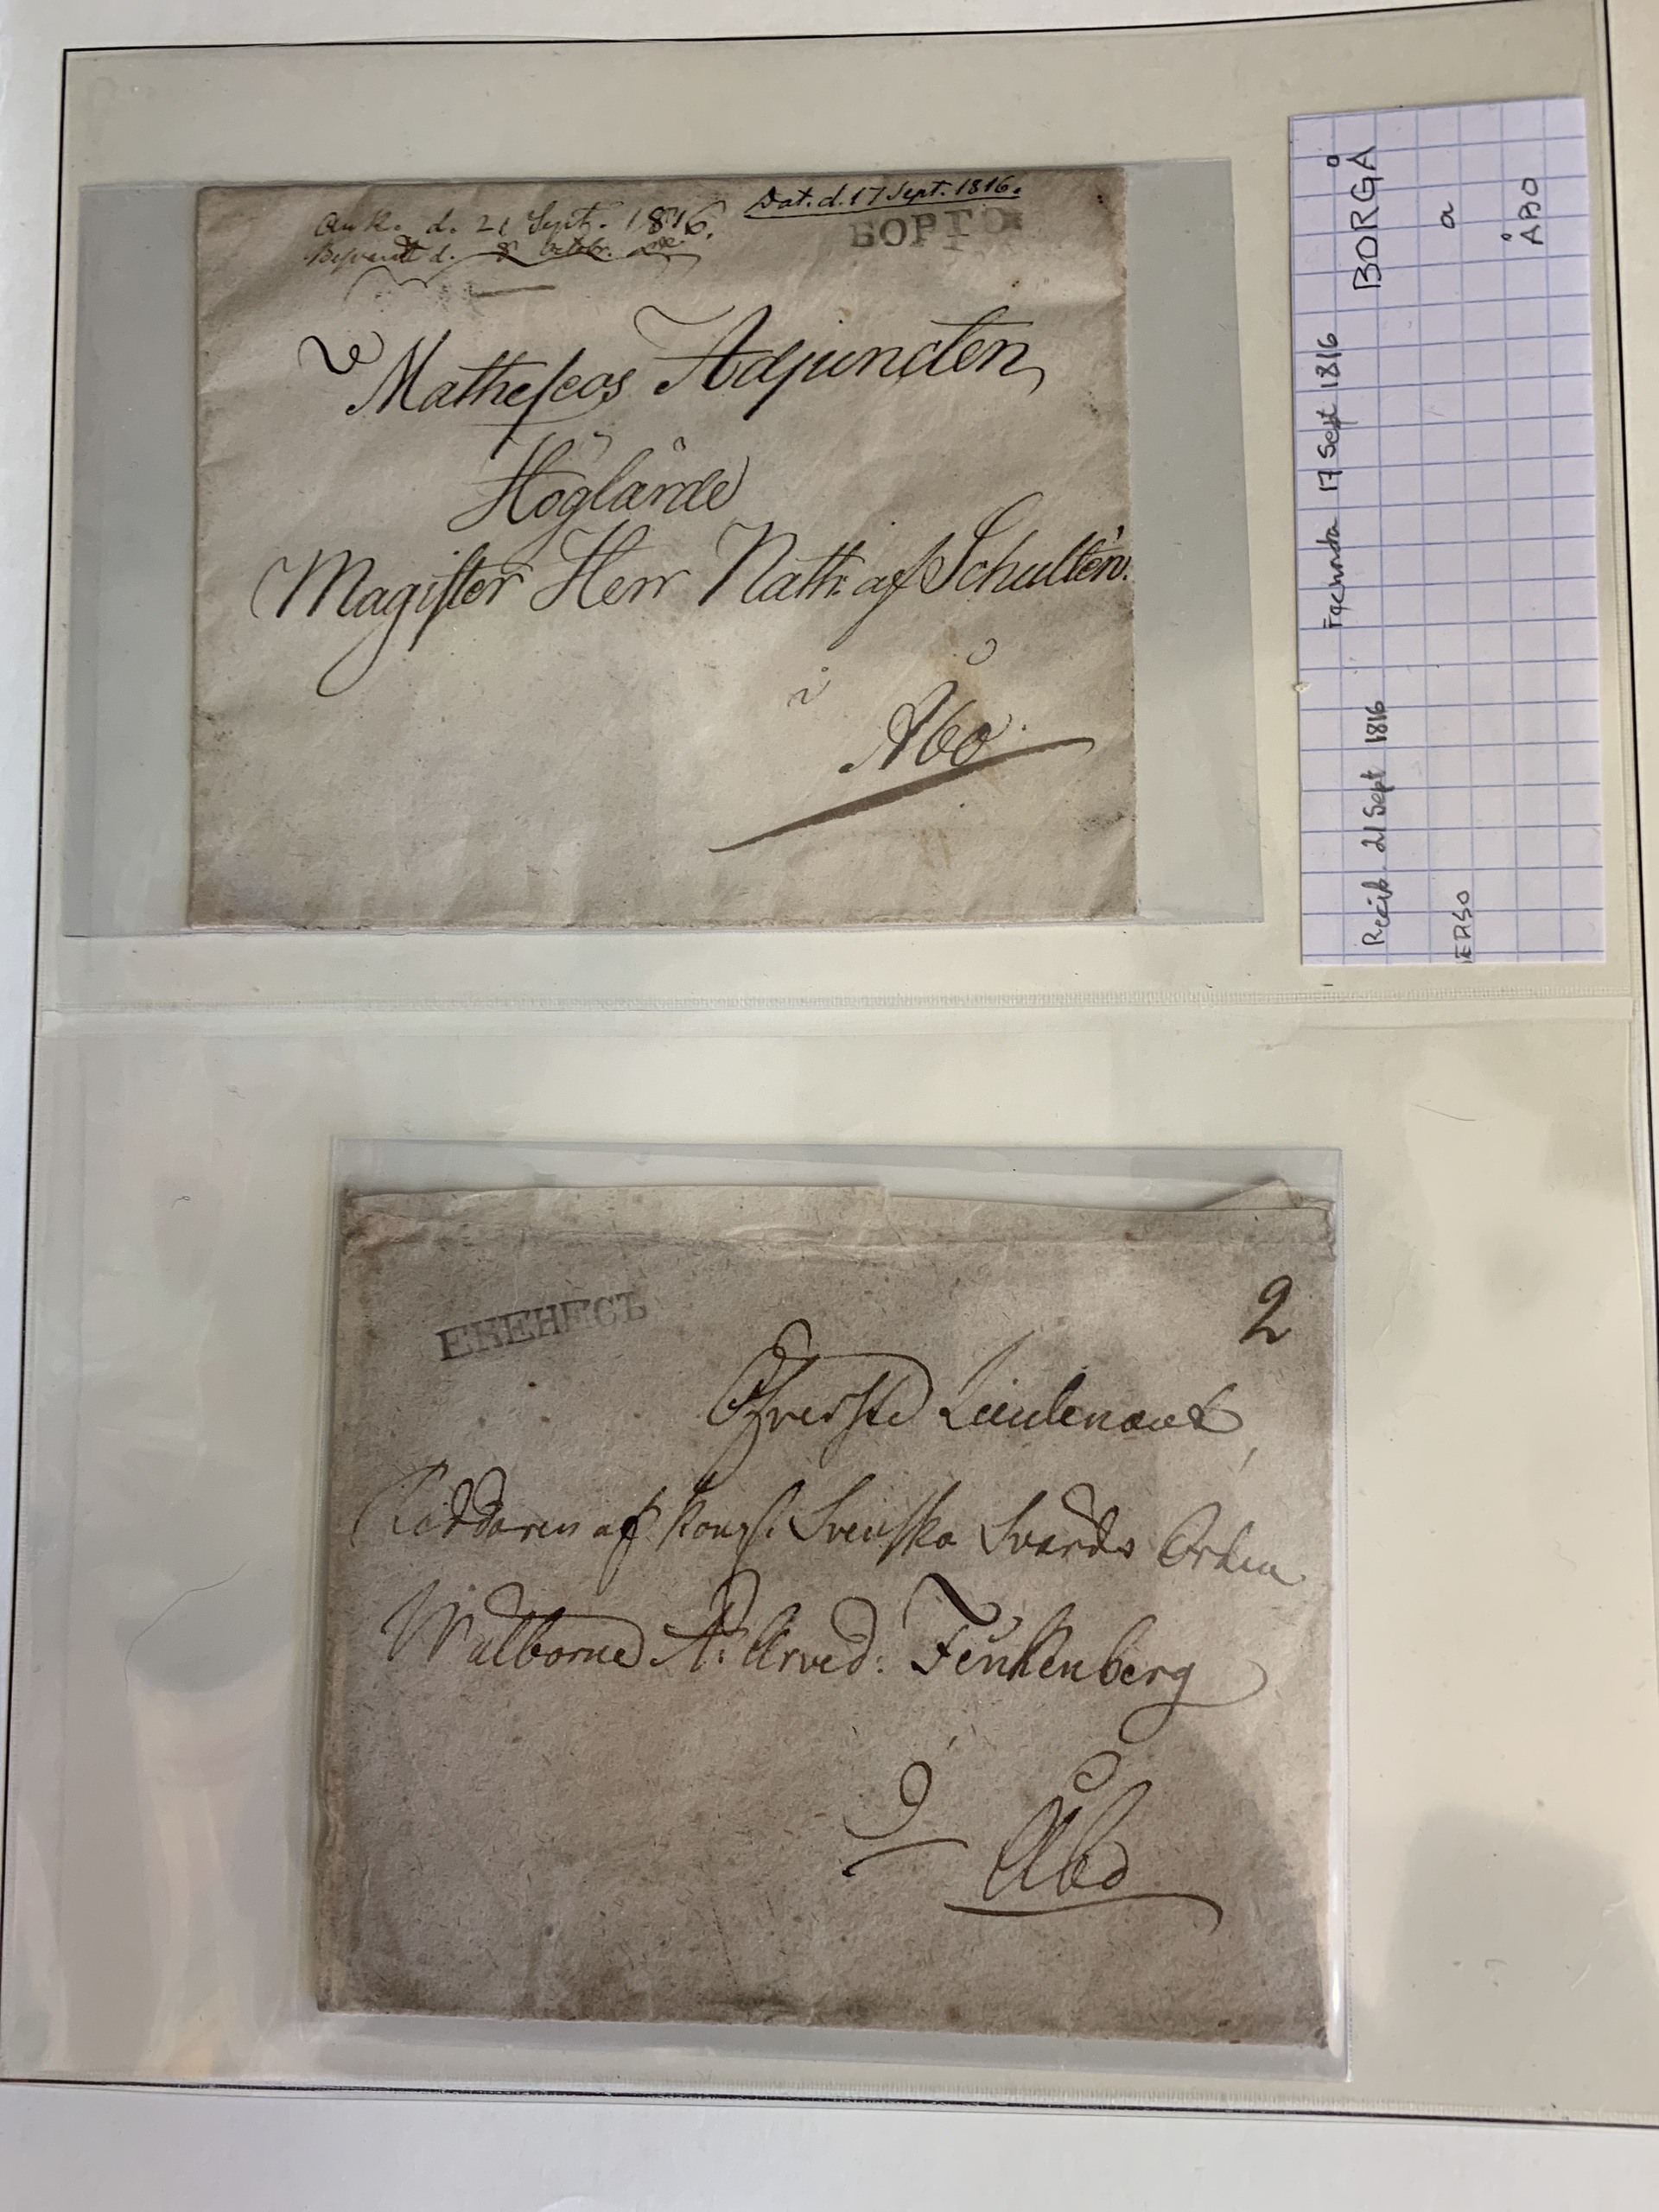 Ank. d. 21 Sept. 1816.
Dat. d. 17 Sept. 1816.
Besvarett d. 8 Octobr.
БОРГО
Matheseos Adjuncten
Höglärde
Magister Herr Nath. af Schultén.
i
Åbo
BORGÅ
a
ÅBO
Facenda 17 Sept 1816
Recib 21 Sept 1816
ERSO
ЕКЕНЕСЪ
2
Öfverste Lieutenant
Riddaren af Kongl. Svenska Svärds Orden
Wälborne H. Arved: Fenkenberg
Åbo